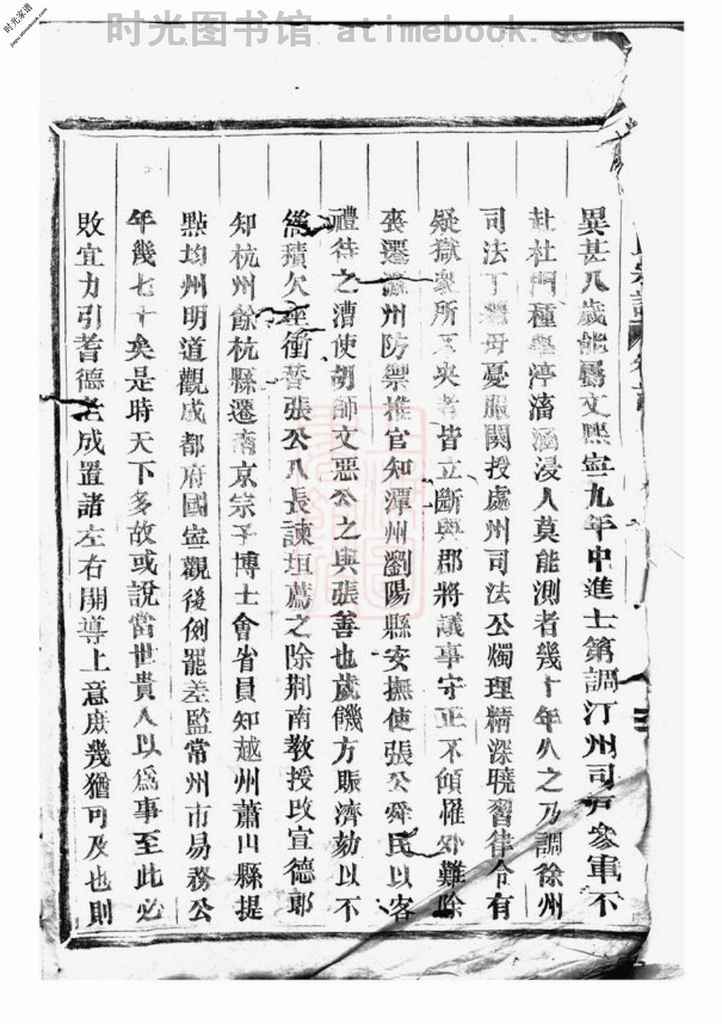 时光图书馆 atimebook.co
时光家谱
异甚八歲能屬文熙寧九年中進士第調汀州司戶參軍不
赴杜門種學渟滀涵浸人莫能測者幾十年久之乃調徐州
司法丁繼母憂服闋授處州司法公燭理精深曉習律令有
疑獄衆所不決者皆立斷與郡將議事守正不傾罹外難除
喪遷瀛州防禦推官知潭州瀏陽縣安撫使張公舜民以客
禮待之漕使胡師文惡公之與張善也歲饑方賑濟劾以不
積欠坐衝替張公入長諫垣薦之除荆南教授改宣德郎
知杭州餘杭縣遷南京宗子博士會省員知越州蕭山縣提
點均州明道觀成都府國寧觀後例罷差監常州市易務公
年幾七十矣是時天下多故或說當世貴人以爲事至此必
敗宜力引耆德老成置諸左右開導上意庶幾猶可及也則